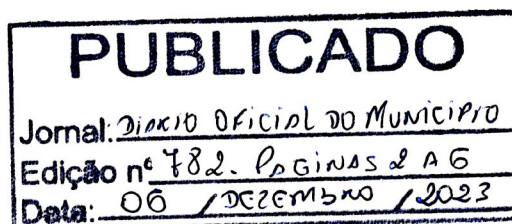 PUBLICADO
Jornal: DIARIO OFICIAL DO MUNICIPIO
Edição nº 782. PAGINAS 2 A 6
Data: 06 / DEZEMBRO / 2023